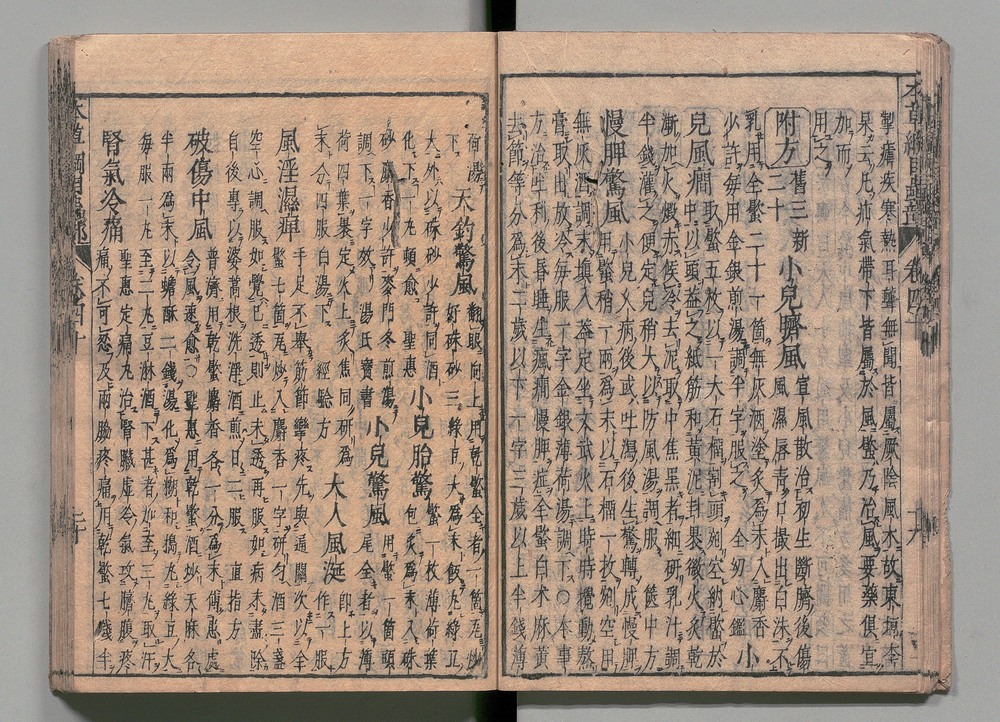 掣瘧疾寒熱耳聾無聞皆屬厥陰風木故東垣李
杲云凡疝氣帶下皆屬於風蠍乃治風要藥俱宜
加而
用之
附方
舊三新
二十
小兒臍風
宣風散治初生斷臍後傷
風濕唇青口撮出白沫不
乳用全蠍二十一箇無灰酒塗炙爲末入麝香
少許每用金銀煎湯調半字服之 全幼心鑑 小
兒風癇
取蠍五枚以一大石榴割頭剜空納蠍於
中以頭蓋之紙筋和黃泥封裹微火炙乾
漸加火煅赤候冷去泥取中焦黑者細研乳汁調
半錢灌之便定兒稍大以防風湯調服 篋中方
慢脾驚風
小兒久病後或吐瀉後生驚轉成慢脾
用蠍稍一兩爲末以石榴一枚剜空用
無灰酒調末填入蓋定坐文武火上時時攪動熬
膏取出放冷每服一字金銀薄荷湯調下〇本事
方治吐利後昏睡生風癇慢脾症全蠍白朮麻黃
去節等分爲末二歲以下一字三歲以上半錢薄
荷湯
下
天釣驚風
翻眼向上用乾蠍全者一箇瓦炒
好硃砂三綠豆大爲末飯丸綠豆
大外以硃砂少許同酒
化下一丸頓愈 聖惠
小兒胎驚
蠍一枚薄荷葉
包炙爲末入硃
砂麝香少許麥門冬煎湯
調下一字效 湯氏寶書
小兒驚風
用蠍一箇頭
尾全者以薄
荷四葉裹定火上炙焦同研爲
末分四服白湯下 經驗方
大人風涎
即上方
作一服
風淫濕痹
手足不舉筋節攣疼先與通關次以全
蠍七箇瓦炒入麝香一字研勻酒三盞
空心調服如覺已透則止未透再服如病未盡除
自後專以婆蒿根洗淨酒煎日二服 直指方
破傷中風
普濟用乾蠍麝香各一分爲末傅患處
令風速愈〇聖惠用乾蠍酒炒天麻各
半兩爲末以蟾酥二錢湯化爲糊和搗丸綠豆大
每服一丸至二丸豆淋酒下甚者加至三丸取汗
腎氣冷痛
聖惠定痛丸治腎臟虛冷氣攻臍腹疼
痛不可忍及兩脇疼痛用乾蠍七錢半